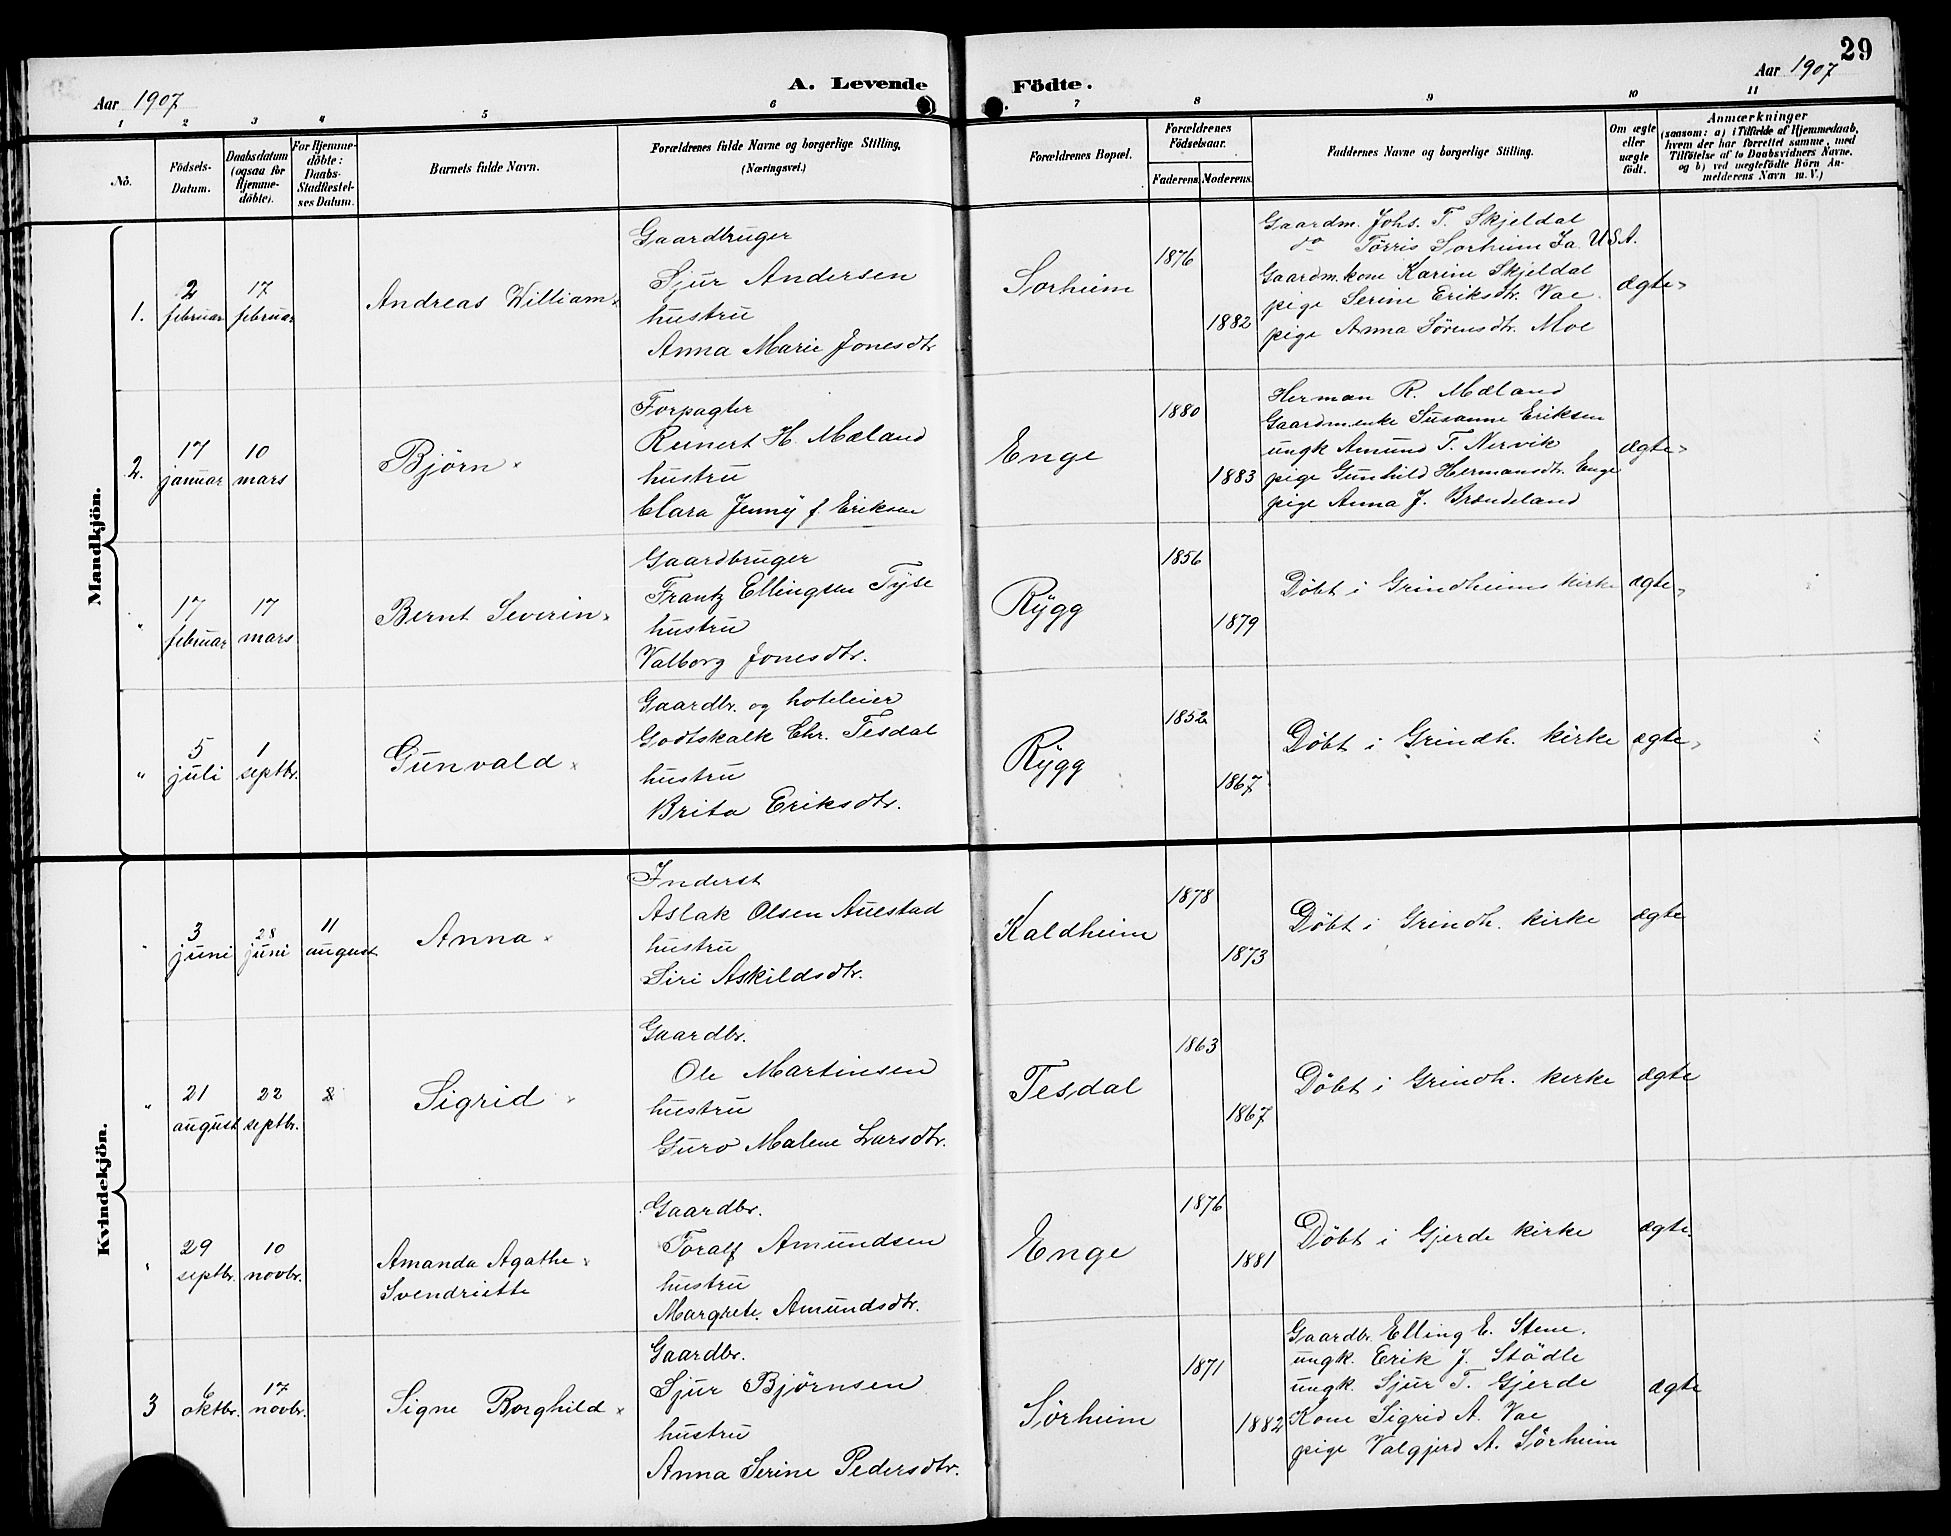 29
Aar 1907
A. Levende Födte.
Aar 1907
1 2 3 4 5 6 7 8 9 10 11
No.
Födsels-Datum.
Daabsdatum (ogsaa for Hjemmedöbte).
For Hjemmedöbte: Daabs-Stadfæstelses Datum.
Barnets fulde Navn.
Forældrenes fulde Navne og borgerlige Stilling,
(Næringsvei.)
Forældrenes Bopæl.
Forældrenes Födselsaar.
Faderens. Moderens.
Faddernes Navne og borgerlige Stilling.
Om ægte eller uægte födt.
Anmærkninger
(saasom: a) i Tilfælde af Hjemmedaab,
hvem der har forrettet samme, med
Tilföielse af to Daabsvidners Navne.
og b) ved uægtefödte Börn Anmelderens Navn m. V.)
Mandkjön.
1.
2 februar
17 februar
Andreas William
Gaardbruger
Sjur Andersen
hustru
Anna Marie Jonesdtr
Sørheim
1876
1882
Gaardm. Johs. T. Skjeldal
do Tørris Sørheim Ja. U.S.A.
Gaardm.kone Karine Skjeldal
pige Serine Eriksdtr. Vae.
pige Anna Sørensdtr. Moe
ægte
2.
17 januar
10 mars
Björn
Forpagter
Reinert H. Mæland
hustru
Clara Jenny f. Eriksen
Enge
1880
1883
Herman R. Mæland
Gaardm.enke Susanne Eriksen
ungk Amund T. Nervik
pige Gunhild Hermansdtr. Enge
pige Anna J. Brændeland
ægte
"
17 februar
17 mars
Bernt Severin
Gaardbruger
Frantz Ellingsen Tyse
hustru
Valborg Jonesdtr.
Rygg
1856
1879
Döbt i Grindheims kirke
ægte
"
5 juli
1 septbr.
Gunvald
Gaardbr. og hoteleier
Godtskalk Chr. Tesdal
hustru
Brita Eriksdtr.
Rygg
1852
1867
Döbt i Grindh. kirke
ægte
Kvindekjön.
"
3 juni
28 juni
11 august
Anna
Inderst
Aslak Olsen Auestad
hustru
Siri Askildsdtr.
Kaldheim
1878
1873
Döbt i Grindh. kirke
ægte
"
21 august
22 septbr.
Sigrid
Gaardbr.
Ole Martinsen
hustru
Guro Malene Larsdtr.
Tesdal
1863
1867
Döbt i Grindh. kirke
ægte
"
29 septbr.
10 novbr.
Amanda Agathe
Svendriette
Gaardbr.
Toralf Amundsen
hustru
Margrete Amundsdtr.
Enge
1876
1881
Döbt i Gjerde kirke
ægte
3
6 oktbr.
17 novbr.
Signe Borghild
Gaardbr.
Sjur Bjørnsen
hustru
Anna Serine Pedersdtr.
Sørheim
1871
1882
Gaardbr. Elling E. Stene.
ungk. Erik J. Stödle
ungk. Sjur T. Gjerde
Kone Sigrid A. Vae
pige Valgjerd A. Sörheim
ægte